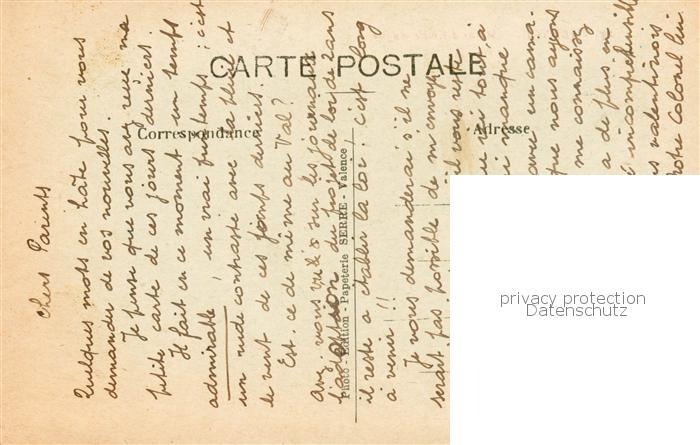 CARTE POSTALE
Correspondance
Adresse
Photo - Édition - Papeterie SERRE - Valence
Chers Parents
Quelques mots en hâte pour vous
demander de vos nouvelles.
Je pense que vous avez reçu ma
petite carte de ces jours derniers.
Il fait en ce moment un temps
admirable un vrai printemps : c'est
un rude contraste avec la pluie et
le vent de ces jours derniers.
Est-ce de même au Val ?
Avez vous vu sur les journaux
l'adoption du projet de loi de 2 ans
il reste à établir la loi : c'est long
à venir !!!
Je vous demanderai s'il ne
serait pas possible de m'envoyer
s'il vous reste
ai tout à
manque
avec un cama-
que nous ayons
me connaissez
a de plus in
incompréhensible
valentinois
notre Colonel lui-
privacy protection
Datenschutz